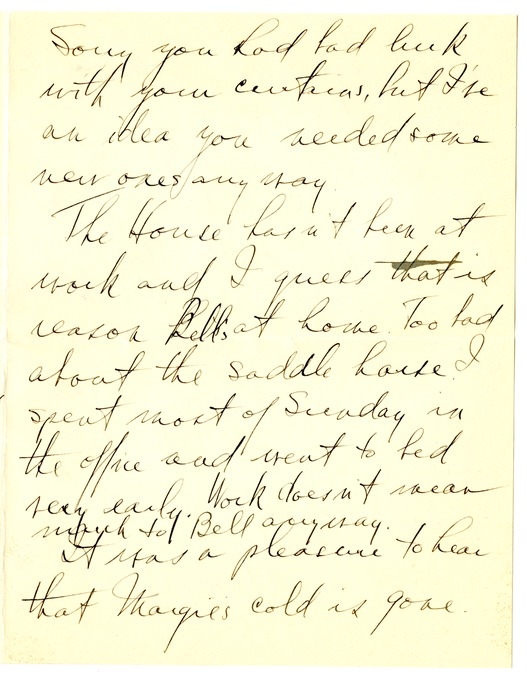 Sorry you had bad luck
with your curtains, but I've
an idea you needed some
new ones anyway.
The House hasn't been at
work and I guess that is
reason Bell's at home. Too bad
about the saddle horse. I
spent most of Sunday in
the office and went to bed
very early. Work doesn't mean
much to Bell anyway.
It was a pleasure to hear
that Margie's cold is gone.